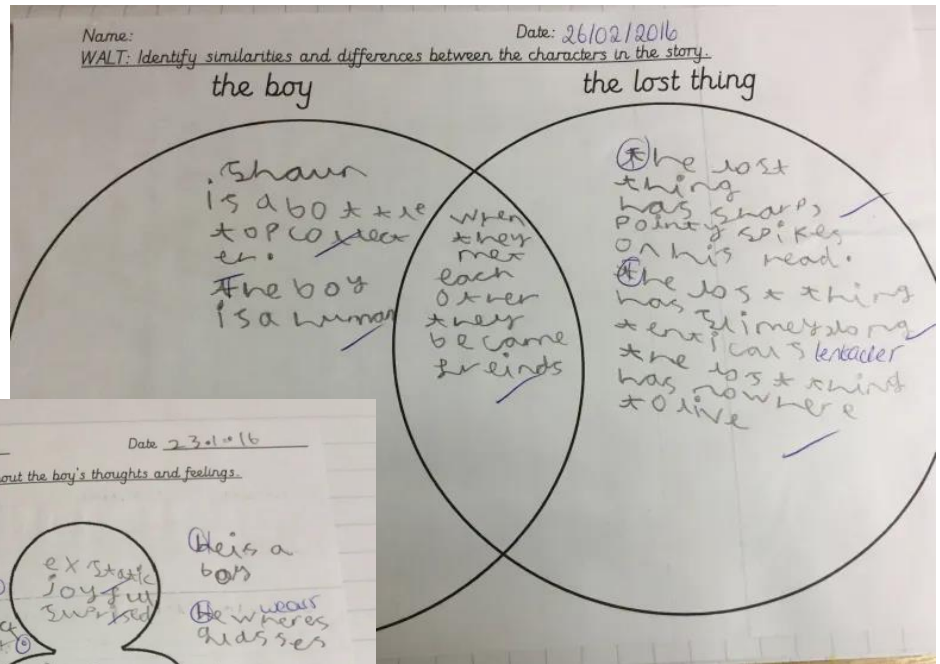 Name:
Date: 26/02/2016
WALT: Identify similarities and differences between the characters in the story.
the boy
the lost thing
. Shaun
is a bottle
top collect
er.
The boy
is a human
when
they
met
each
other
they
became
freinds
The lost
thing
has sharp,
pointy spikes
on his head.
The lost thing
has slimey long
tenticals tentacles
the lost thing
has nowhere
to live
Date 23.1.16
out the boy's thoughts and feelings.
exstatic
joyful
surprised
He is a
boy
He wheres wears
glasses